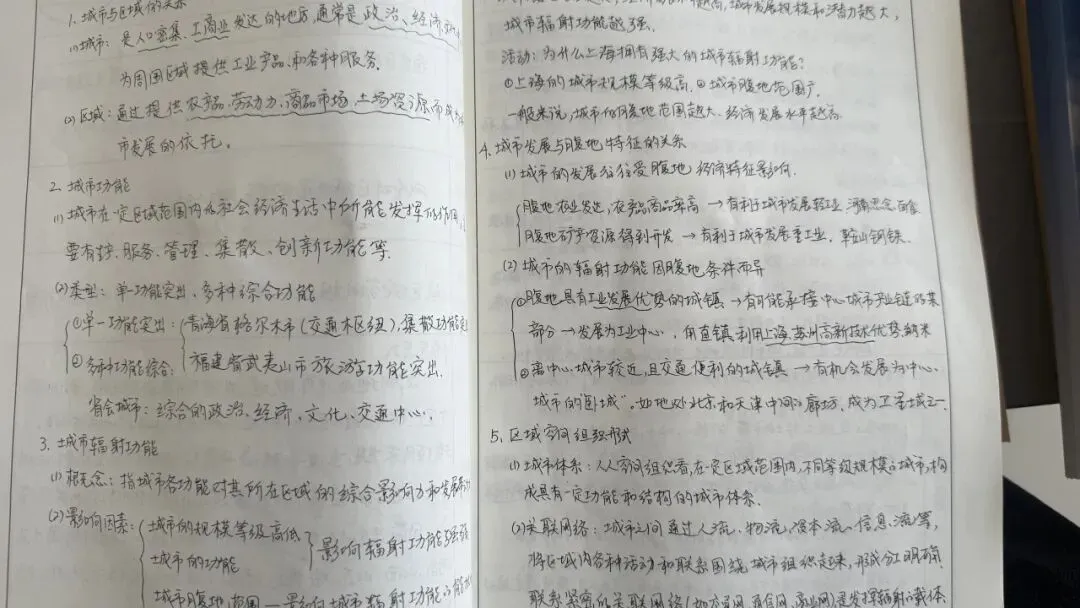 1. 城市与区域的关系
(1) 城市：是人口密集、工商业发达的地方，通常是政治、经济、
为周围区域提供工业产品和各种服务。
(2) 区域：通过提供农产品、劳动力、商品市场、土地资源而成为
市发展的依托。
2. 城市功能
(1) 城市在一定区域范围内的社会经济生活中所能发挥的作用，
要有 服务、管理、集散、创新功能等.
(2) 类型：单一功能突出、多种综合功能
①单一功能突出：青海省格尔木市(交通枢纽)，集散功能
福建省武夷山市旅游功能突出.
②多种功能综合：
省会城市：综合的政治、经济、文化、交通中心.
3. 城市辐射功能
(1) 概念：指城市各功能对其所在区域的综合影响力和发展
(2) 影响因素：城市的规模等级高低
城市的功能 影响辐射功能强弱
城市腹地范围— 影响城市辐射功能的
城市发展规模和潜力越大，
城市辐射功能越强.
活动：为什么上海拥有强大的城市辐射功能?
①上海的城市规模等级高. ②城市腹地范围广.
一般来说，城市的腹地范围越大、经济发展水平越高
4. 城市发展与腹地特征的关系
(1) 城市的发展往往受腹地经济特征影响.
腹地农业发达，农产品商品率高 → 有利于城市发展轻工业.
腹地矿产资源得到开发 → 有利于城市发展重工业. 鞍山钢铁.
(2) 城市的辐射功能因腹地条件而异
①腹地具有工业发展优势的城镇 → 有可能承接中心城市产业链的某
部分 → 发展为工业中心，甪直镇利用上海、苏州高新技术优势
②离中心城市较近，且交通便利的城镇 → 有机会发展为中心
城市的"卧城"。如地处北京和天津中间的廊坊，成为卫星城之一.
5. 区域空间组织形式
(1) 城市体系：从空间组织看，在一定区域范围内，不同等级规模的城市，构
成具有一定功能和结构的城市体系.
(2) 关联网络：城市之间通过人流、物流、资本流、信息流等，
将区域内各种活动和联系围绕城市组织起来，形成分工明确、
联系紧密的关联网络(如交通网、通信网、商业网)是发挥辐射的载体